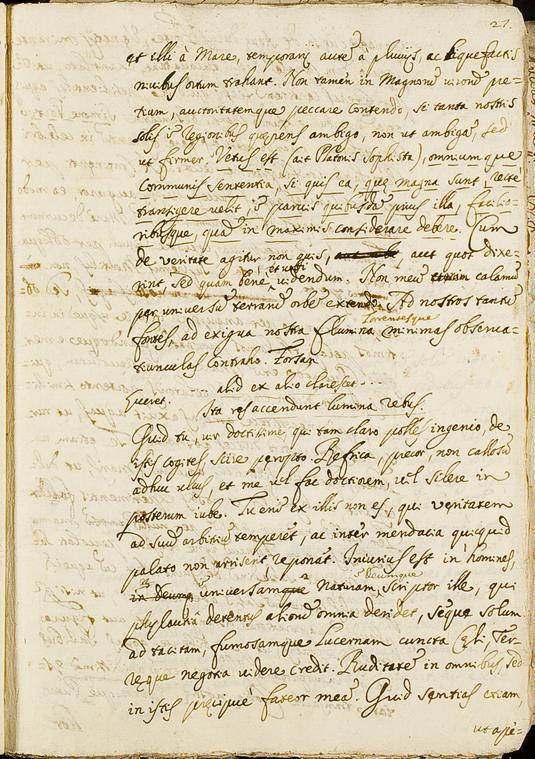 27.
et illi à Mare, temporarij autē à pluvijs, ac liquefactis
nivibus ortum trahant. Non tamen in Magnorū virorū pre=
tium, auctoritatemque peccare contendo, si tanta nostris
solis is Regionibus quærens ambigo, non ut ambigā, sed
ut firmer. Vetus est (ait Platonis Sophista), omniumque
Communis sententia, si quis ea, quæ magna sunt, rectè
trantigere velit, is parvis quibusdā prius illa, facilio=
ribusque, quā in maximis considerare debere. Cum
de veritate agitur non quis, aut quot dixe=
rint sed quam bene, et ubi videndum. Non meū etiam calamū
per universū terrarū orbē extendo. Ad nostros tantū
Torrentesque
fontes, ad exigua nostra flumina minimas observa=
tiunculas contraho. Forsan
... alid ex alio clarescet ...
Hueret. Ita res accendunt lumina rebus.
Quid tu, vir doctissime, qui tam claro polles ingenio, de
istis cogites, scire percupio. Refrica, precor, non callosū
adhuc ulcus, et me vel fac doctiorem, vel silere in
posterum iube. Tu enim ex illis non es, qui veritatem
ad suū arbitriū temperet, ac inter mendacia quicquid
palato non arriserit reponat. Iniurius est in homines,
Deumque
in Deum universamque Naturam, scriptor ille, qui
phylautia detentus aliorū omnia deridet, sequè solum
ad tacitam, fumosamque Lucernam cuncta Cæli, Ter=
ræque negotia videre credit. Ruditatē in omnibus, sed
in istis præcipuè fateor meā. Quid sentias etiam,
ut ape=